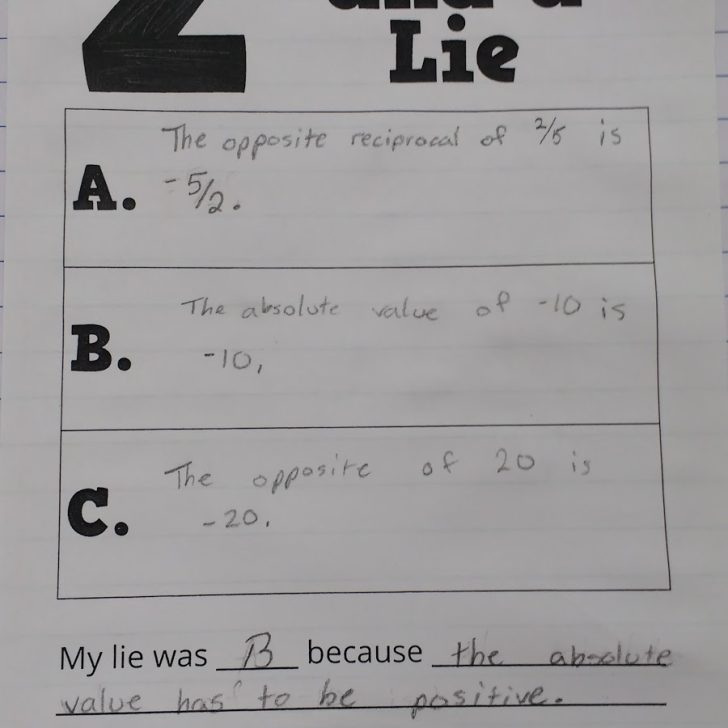 2 and a
Lie
The opposite reciprocal of 2/5 is
A. -5/2.
The absolute value of -10 is
B. -10,
The opposite of 20 is
C. -20.
My lie was B because the absolute
value has to be positive.